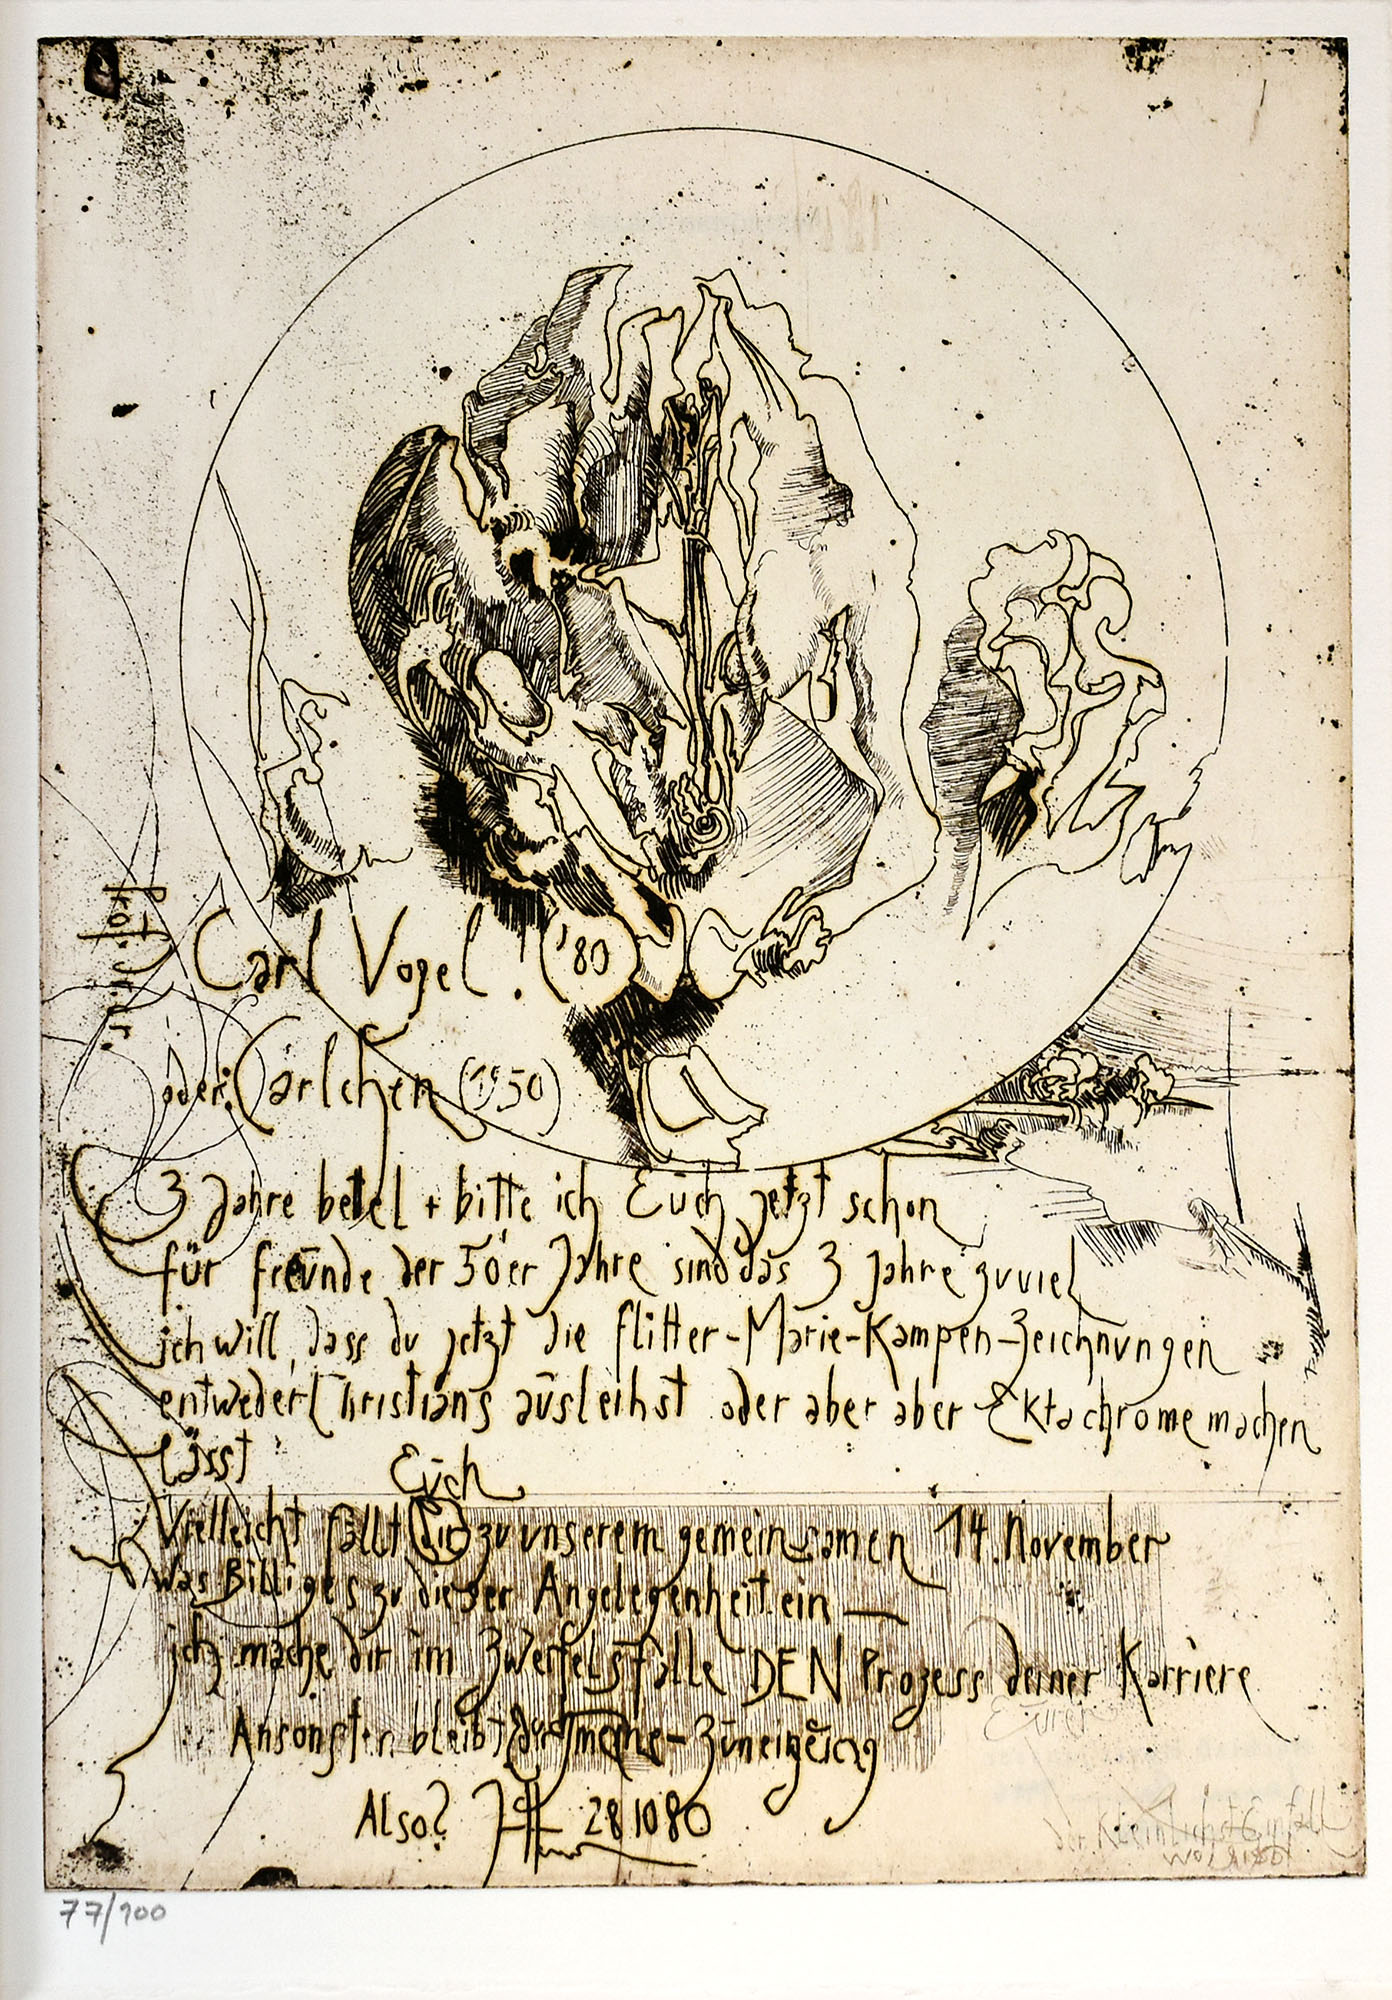 Prof. Dr. jur.
Carl Vogel! ('80)
oder: Carlchen (1950)
3 Jahre bettel + bitte ich Euch jetzt schon
für freunde der 50'er Jahre sind das 3 Jahre zuviel
ich will, dass du jetzt die flitter-Marie-Kampen-Zeichnungen
entweder Christians ausleihst oder aber aber Ektachrome machen
lässt
Euch
Vielleicht fällt dir zu unserem gemeinsamen 14. November
was Billiges zu dieser Angelegenheit ein —
ich mache dir im Zweifelsfalle DEN Prozess deiner Karriere
Ansonsten bleibt dir meine - Zuneigung
Also? 28 10 80
der Kleinlichst Einfall
77/100